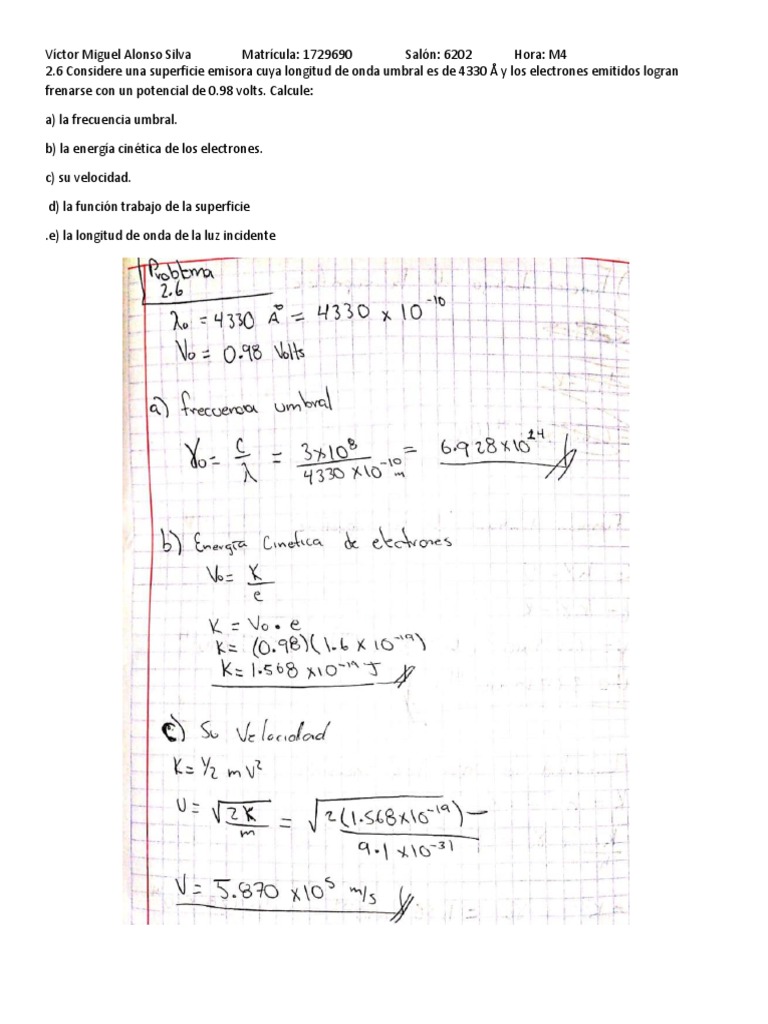 Víctor Miguel Alonso Silva Matrícula: 1729690 Salón: 6202 Hora: M4
2.6 Considere una superficie emisora cuya longitud de onda umbral es de 4330 Å y los electrones emitidos logran
frenarse con un potencial de 0.98 volts. Calcule:
a) la frecuencia umbral.
b) la energía cinética de los electrones.
c) su velocidad.
d) la función trabajo de la superficie
.e) la longitud de onda de la luz incidente
Problema
2.6
λo = 4330 Å = 4330 x 10^-10
Vo = 0.98 Volts
a) frecuencia umbral
γo = c/λ = 3x10^8 / 4330 x10^-10 m = 6.928x10^14
b) Energía Cinetica de electrones
Vo = K/e
K = Vo • e
K = (0.98)(1.6 x 10^-19)
K = 1.568 x10^-19 J
c) Su Velocidad
K = 1/2 m V^2
V = √2K/m = √2(1.568x10^-19) / 9.1 x10^-31
V = 5.870 x10^5 m/s